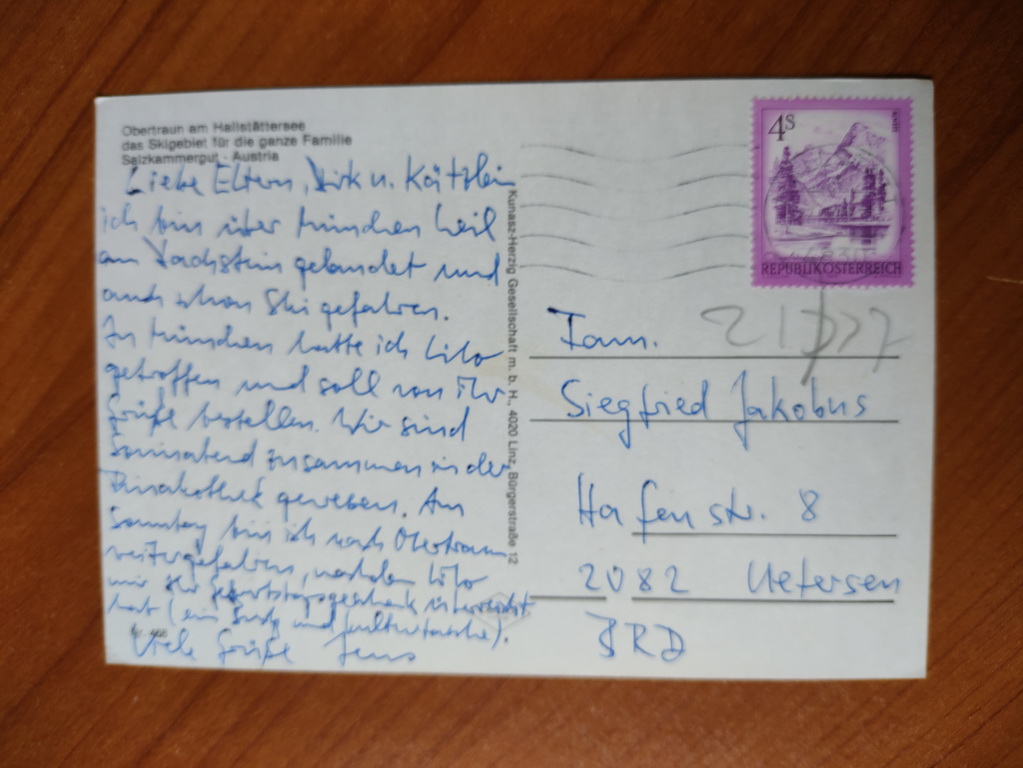 Obertraun am Hallstättersee
das Skigebiet für die ganze Familie
Salzkammergut - Austria
Liebe Eltern, Dirk u. Kätzlein
ich bin über München heil
am Dachstein gelandet und
auch schon Ski gefahren.
In München hatte ich Lilo
getroffen und soll von ihr
Grüße bestellen. Wir sind
Sonnabend zusammen in der
Pinakothek gewesen. Am
Sonntag bin ich nach Obertraun
weitergefahren, nachdem Lilo
mir ihr Geburtstagsgeschenk überreicht
hat (ein Buch und).
Viele Grüße Jens
Kunasz-Herzig Gesellschaft m. b. H., 4020 Linz, Bürgerstraße 12
4S
REPUBLIK ÖSTERREICH
Fam.
Siegfried Jakobus
Hafenstr. 8
2082 Uetersen
BRD